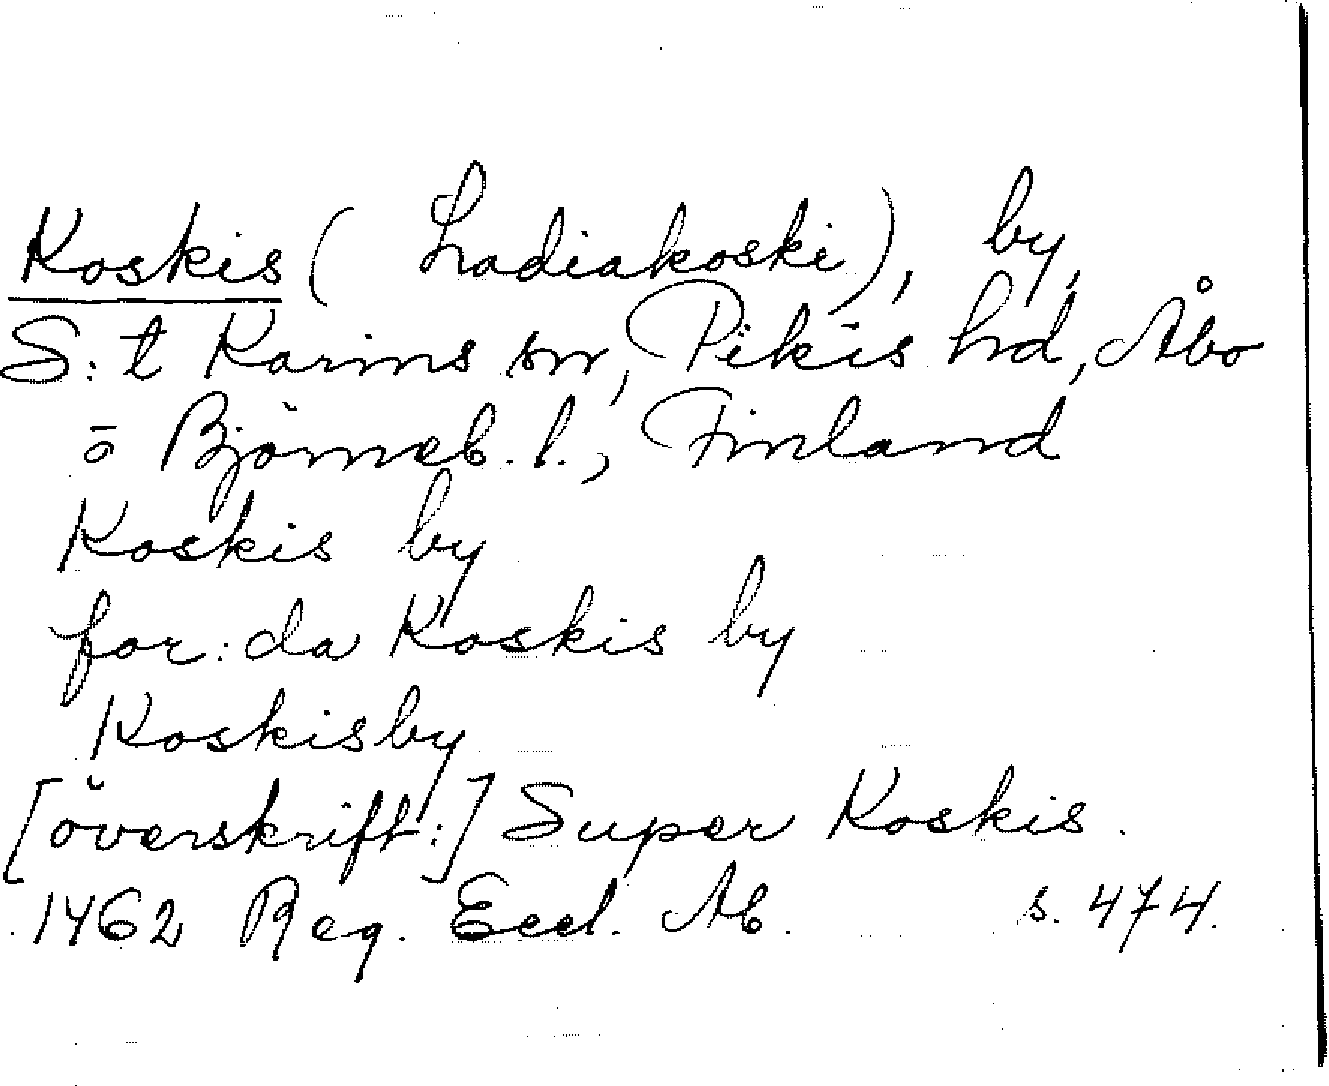 Koskis (Ladiakoski), by,
S:t Karins sn, Pikis hd, Åbo
o Björneb. l., Finland
Koskis by
for:da Koskis by
Koskisby
[överskrift:] Super Koskis.
1462 Reg. Eccl. Ab. s. 474.